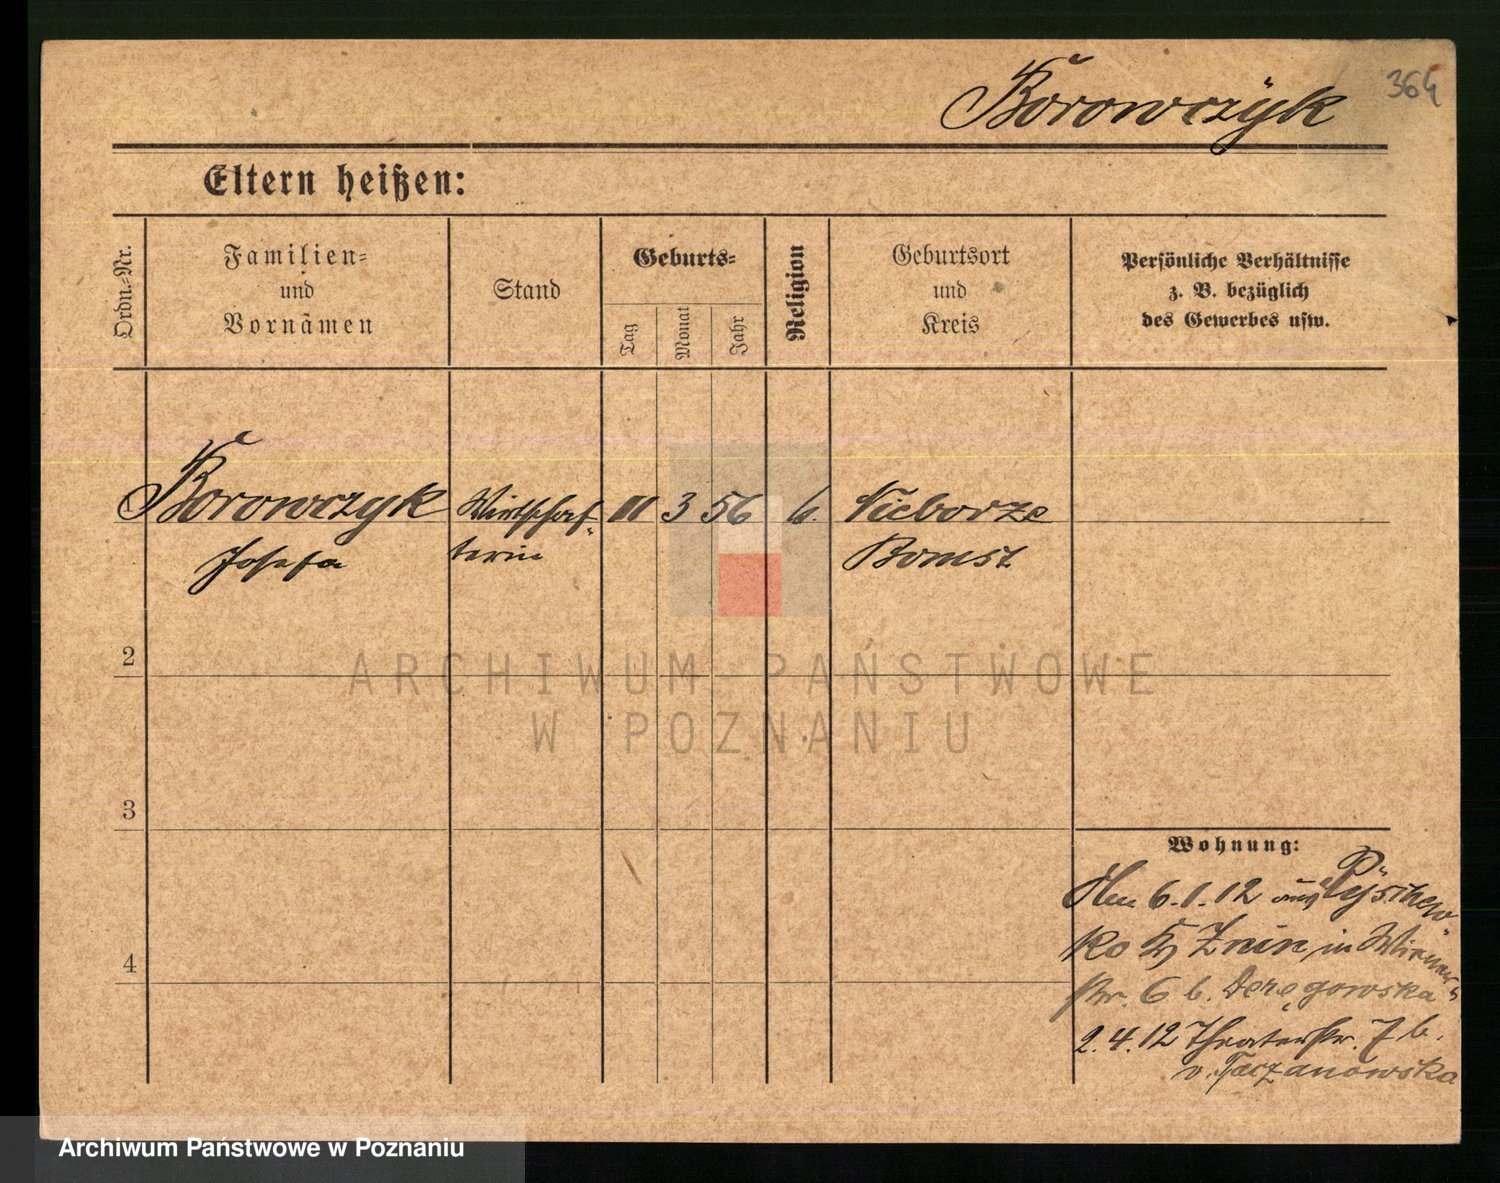 364
Borowczÿk
Eltern heißen:
Ordn.-Nr.
Familien-
und
Vornamen
Stand
Geburts-
Tag
Monat
Jahr
Religion
Geburtsort
und
Kreis
Persönliche Verhältnisse
z. B. bezüglich
des Gewerbes usw.
Borowczyk Wirtschaf- 3 56 k. Nieborze
Josefa terin Bomst.
2
ARCHIWUM PAŃSTWOWE
W POZNANIU
3
Wohnung:
6.1.12 aus
ko Znin, in Wiener-
4
str. 6 b. Deręgowska
2.4.12 Theaterstr. 7 b.
v. Taczanowska
Archiwum Państwowe w Poznaniu